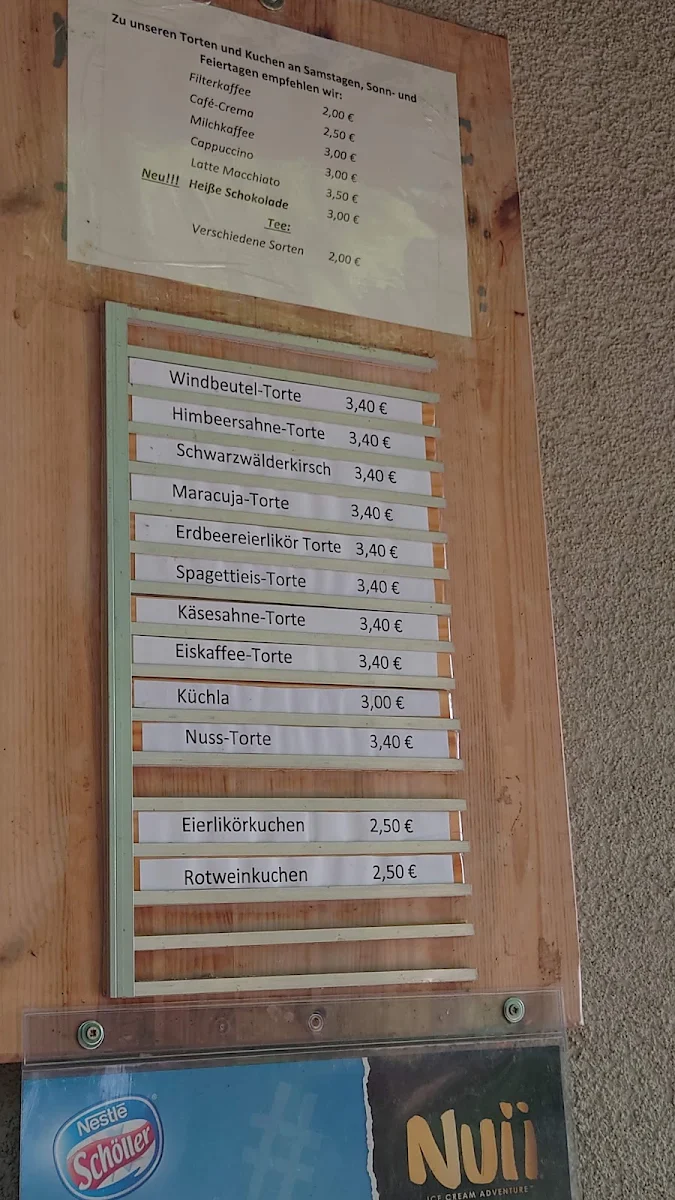 Zu unseren Torten und Kuchen an Samstagen, Sonn- und
Feiertagen empfehlen wir:
Filterkaffee 2,00 €
Café-Crema 2,50 €
Milchkaffee 3,00 €
Cappuccino 3,00 €
Latte Macchiato 3,50 €
Neu!!! Heiße Schokolade 3,00 €
Tee:
Verschiedene Sorten 2,00 €
Windbeutel-Torte 3,40 €
Himbeersahne-Torte 3,40 €
Schwarzwälderkirsch 3,40 €
Maracuja-Torte 3,40 €
Erdbeereierlikör Torte 3,40 €
Spagettieis-Torte 3,40 €
Käsesahne-Torte 3,40 €
Eiskaffee-Torte 3,40 €
Küchla 3,00 €
Nuss-Torte 3,40 €
Eierlikörkuchen 2,50 €
Rotweinkuchen 2,50 €
Nestlé
Schöller
#
Nuii
ICE CREAM ADVENTURE